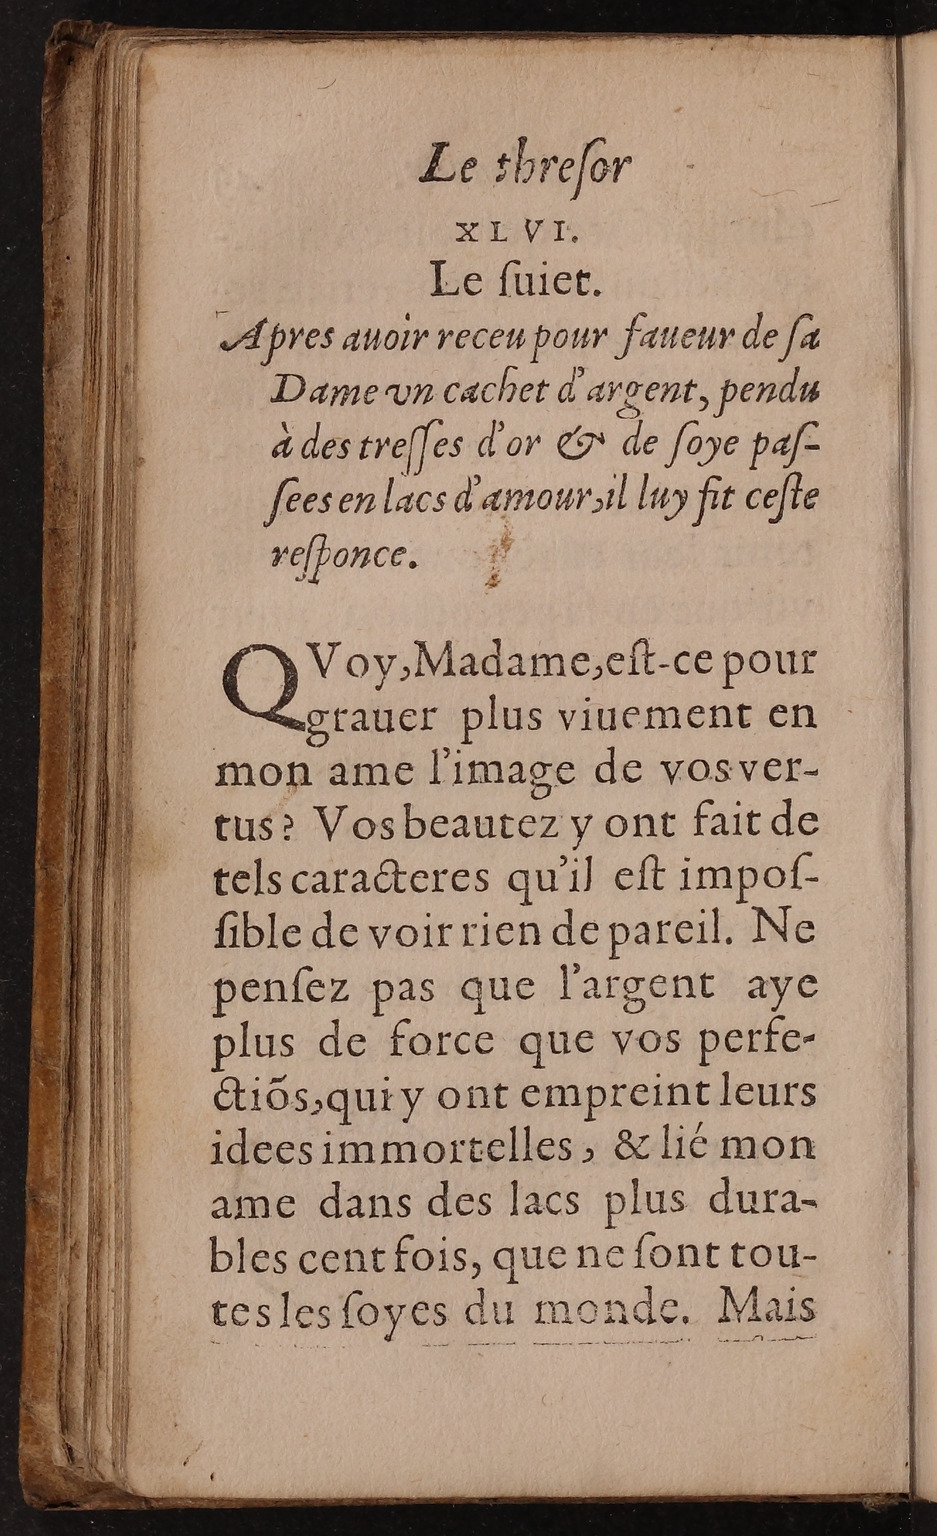 Le threſor
XLVI.
Le ſuiet.
Apres auoir receu pour faueur de ſa
Dame vn cachet d'argent, pendu
à des treſſes d'or & de ſoye paſ-
ſees en lacs d'amour, il luy fit ceſte
reſponce.
QVoy, Madame, eſt-ce pour
grauer plus viuement en
mon ame l'image de vos ver-
tus? Vos beautez y ont fait de
tels caracteres qu'il eſt impoſ-
ſible de voir rien de pareil. Ne
penſez pas que l'argent aye
plus de force que vos perfe-
ctiõs, qui y ont empreint leurs
idees immortelles, & lié mon
ame dans des lacs plus dura-
bles cent fois, que ne ſont tou-
tes les ſoyes du monde. Mais